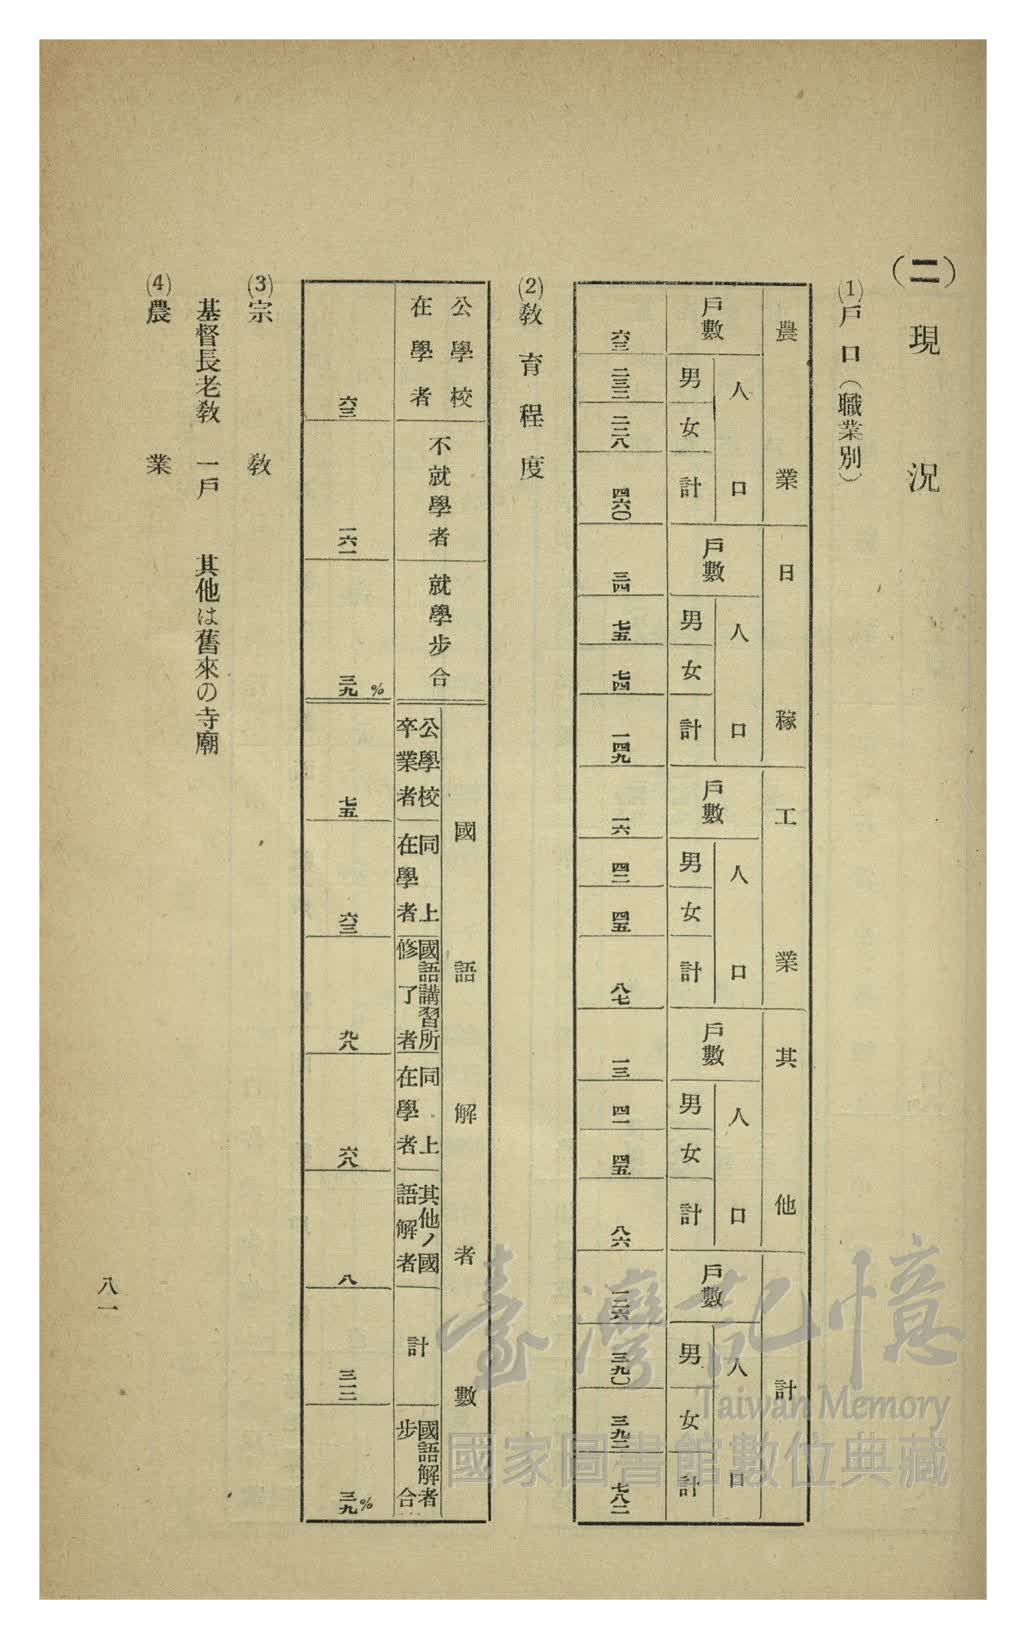 (二) 現況
(1) 戶口(職業別)
農業
日稼
工業
其他
計
人口
人口
人口
人口
人口
戶數 男 女 計
戶數 男 女 計
戶數 男 女 計
戶數 男 女 計
戶數 男 女 計
六三 二三二 二二八 四六〇
三四 七五 七四 一四九
一六 四二 四五 八七
一三 四一 四五 八六
一二六 三九〇 三九二 七八二
(2) 敎育程度
國語解者數
公學校在學者
不就學者
就學步合
公學校卒業者
同上在學者
國語講習所修了者
同上在學者
其他ノ國語解者
計
國語解者步合
六三
一六一
三九%
七五
六三
九八
六八
八
三一二
三九%
(3) 宗敎
基督長老敎 一戶 其他は舊來の寺廟
(4) 農業
八一
臺灣記憶
Taiwan Memory
國家圖書館數位典藏